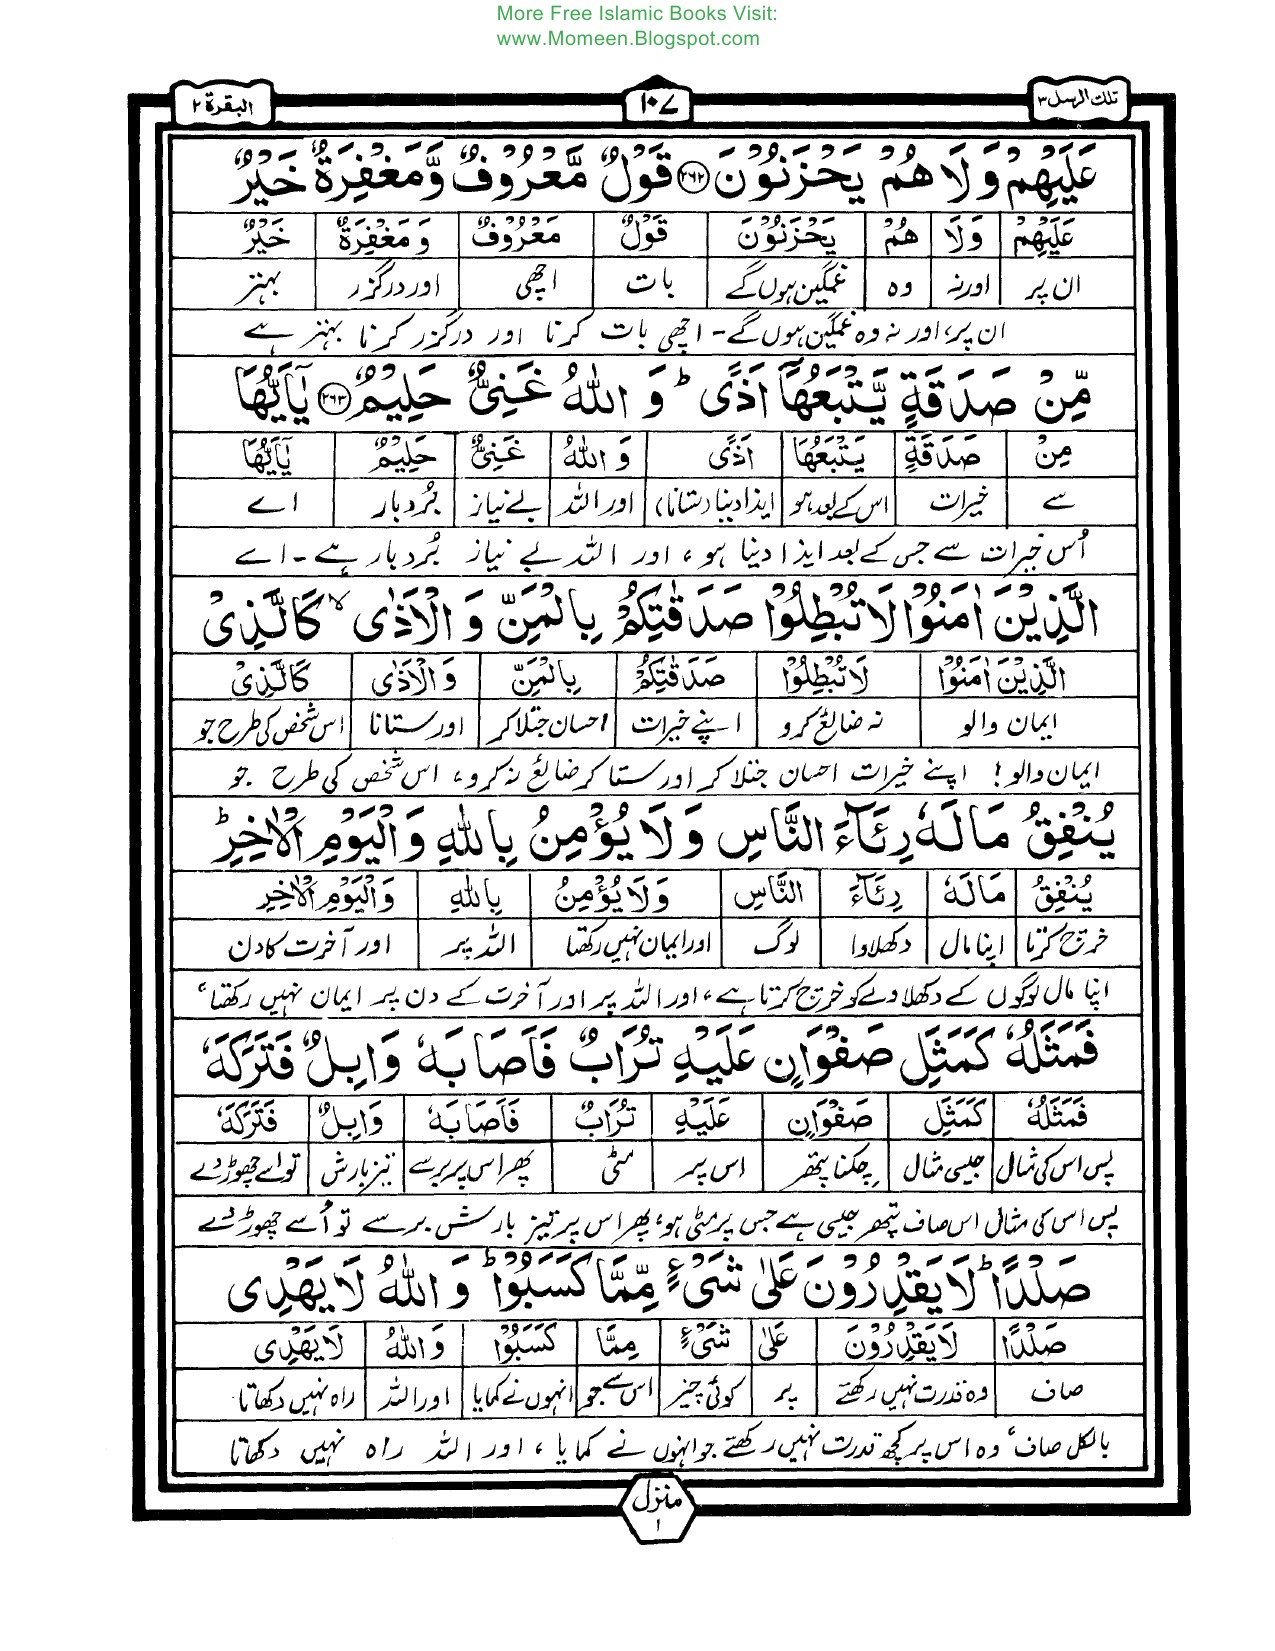 More Free Islamic Books Visit:
www.Momeen.Blogspot.com
تلك الرسل ٣ ١٠٧ البقرة ٢
عَلَيْهِمْ وَلَا هُمْ يَحْزَنُوْنَ ﴿٢٦٢﴾ قَوْلٌ مَّعْرُوْفٌ وَّمَغْفِرَةٌ خَيْرٌ
عَلَيْهِمْ وَلَا هُمْ يَحْزَنُوْنَ قَوْلٌ مَعْرُوْفٌ وَمَغْفِرَةٌ خَيْرٌ
ان پر اور نہ وہ غمگین ہوں گے بات اچھی اور درگزر بہتر
ان پر، اور نہ وہ غمگین ہوں گے۔ اچھی بات کرنا اور درگزر کرنا بہتر ہے
مِّنْ صَدَقَةٍ يَّتْبَعُهَآ اَذًى ؕ وَ اللّٰهُ غَنِىٌّ حَلِيْمٌ ﴿٢٦٣﴾ يٰٓاَيُّهَا
مِنْ صَدَقَةٍ يَتْبَعُهَا اَذًى وَاللّٰهُ غَنِىٌّ حَلِيْمٌ يٰٓاَيُّهَا
سے خیرات اس کے بعد ہو ایذا دینا (ستانا) اور اللہ بے نیاز بُردبار اے
اُس خیرات سے جس کے بعد ایذا دینا ہو، اور اللہ بے نیاز بُردبار ہے۔ اے
الَّذِيْنَ اٰمَنُوْا لَا تُبْطِلُوْا صَدَقٰتِكُمْ بِالْمَنِّ وَ الْاَذٰى ۙ كَالَّذِىْ
الَّذِيْنَ اٰمَنُوْا لَا تُبْطِلُوْا صَدَقٰتِكُمْ بِالْمَنِّ وَالْاَذٰى كَالَّذِىْ
ایمان والو نہ ضائع کرو اپنے خیرات احسان جتلا کر اور ستانا اس شخص کی طرح جو
ایمان والو! اپنے خیرات احسان جتلا کر اور ستا کر ضائع نہ کرو، اس شخص کی طرح جو
يُنْفِقُ مَا لَهٗ رِئَآءَ النَّاسِ وَلَا يُؤْمِنُ بِاللّٰهِ وَالْيَوْمِ الْاٰخِرِ ؕ
يُنْفِقُ مَالَهٗ رِئَآءَ النَّاسِ وَلَا يُؤْمِنُ بِاللّٰهِ وَالْيَوْمِ الْاٰخِرِ
خرچ کرتا اپنا مال دکھلاوا لوگ اور ایمان نہیں رکھتا اللہ پر اور آخرت کا دن
اپنا مال لوگوں کے دکھلاوے کو خرچ کرتا ہے، اور اللہ پر اور آخرت کے دن پر ایمان نہیں رکھتا،
فَمَثَلُهٗ كَمَثَلِ صَفْوَانٍ عَلَيْهِ تُرَابٌ فَاَصَابَهٗ وَابِلٌ فَتَرَكَهٗ
فَمَثَلُهٗ كَمَثَلِ صَفْوَانٍ عَلَيْهِ تُرَابٌ فَاَصَابَهٗ وَابِلٌ فَتَرَكَهٗ
پس اس کی مثال جیسی مثال چکنا پتھر اس پر مٹی پھر اس پر برسے تیز بارش تو اسے چھوڑ دے
پس اس کی مثال اس صاف پتھر جیسی ہے جس پر مٹی ہو، پھر اس پر تیز بارش برسے تو اُسے چھوڑ دے
صَلْدًا ؕ لَا يَقْدِرُوْنَ عَلٰى شَىْءٍ مِّمَّا كَسَبُوْا ؕ وَ اللّٰهُ لَا يَهْدِى
صَلْدًا لَا يَقْدِرُوْنَ عَلٰى شَىْءٍ مِمَّا كَسَبُوْا وَاللّٰهُ لَا يَهْدِى
صاف وہ قدرت نہیں رکھتے پر کوئی چیز اس سے جو انہوں نے کمایا اور اللہ راہ نہیں دکھاتا
بالکل صاف، وہ اس پر کچھ قدرت نہیں رکھتے جو انہوں نے کمایا، اور اللہ راہ نہیں دکھاتا
منزل
١